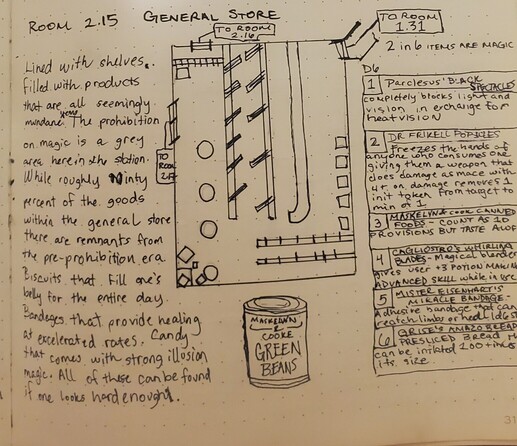 ROOM 2.15
GENERAL STORE
TO ROOM
2.16
TO ROOM
1.31
2 in 6 ITEMS ARE MAGIC
Lined with shelves.
filled with products
that are all seemingly
mundane. The prohibition
on magic is a grey
area here in the station.
While roughly Ninty
percent of the goods
within the general store
there are remnants from
the pre-prohibition era.
Biscuits that fill one's
belly for the entire day.
Bandages that provide healing
at excelerated rates. Candy
that comes with strong illusion
magic. All of these can be found
if one looks hard enough.
TO
ROOM
MASKELYNN
&
COOKE
GREEN
BEANS
D6
1 Parclesus' BLACK
SPECTACLES
completely blocks light and
vision in exchange for
heat vision
2 DR FRIKELL POPSICLES
Freezes the hands of
anyone who consumes one
giving them a weapon that
does damage as mace with
4+ on damage removes 1
init token from target to
min of 1
3 MASKELYN & COOK CANNED
FOODS - COUNT AS 10
PROVISIONS BUT TASTE
4 CAGLIOSTRO'S WHIRLING
BLADES - Magical blender
gives user +3 POTION MAKING
ADVANCED SKILL while in
5 MISTER EISENHART'S
MIRACLE BANDAGE -
Adhesive bandage that can
reatch limb or heal 1d6
6 BREAD
PRESLICED BREAD
can be 200 times
its size
31